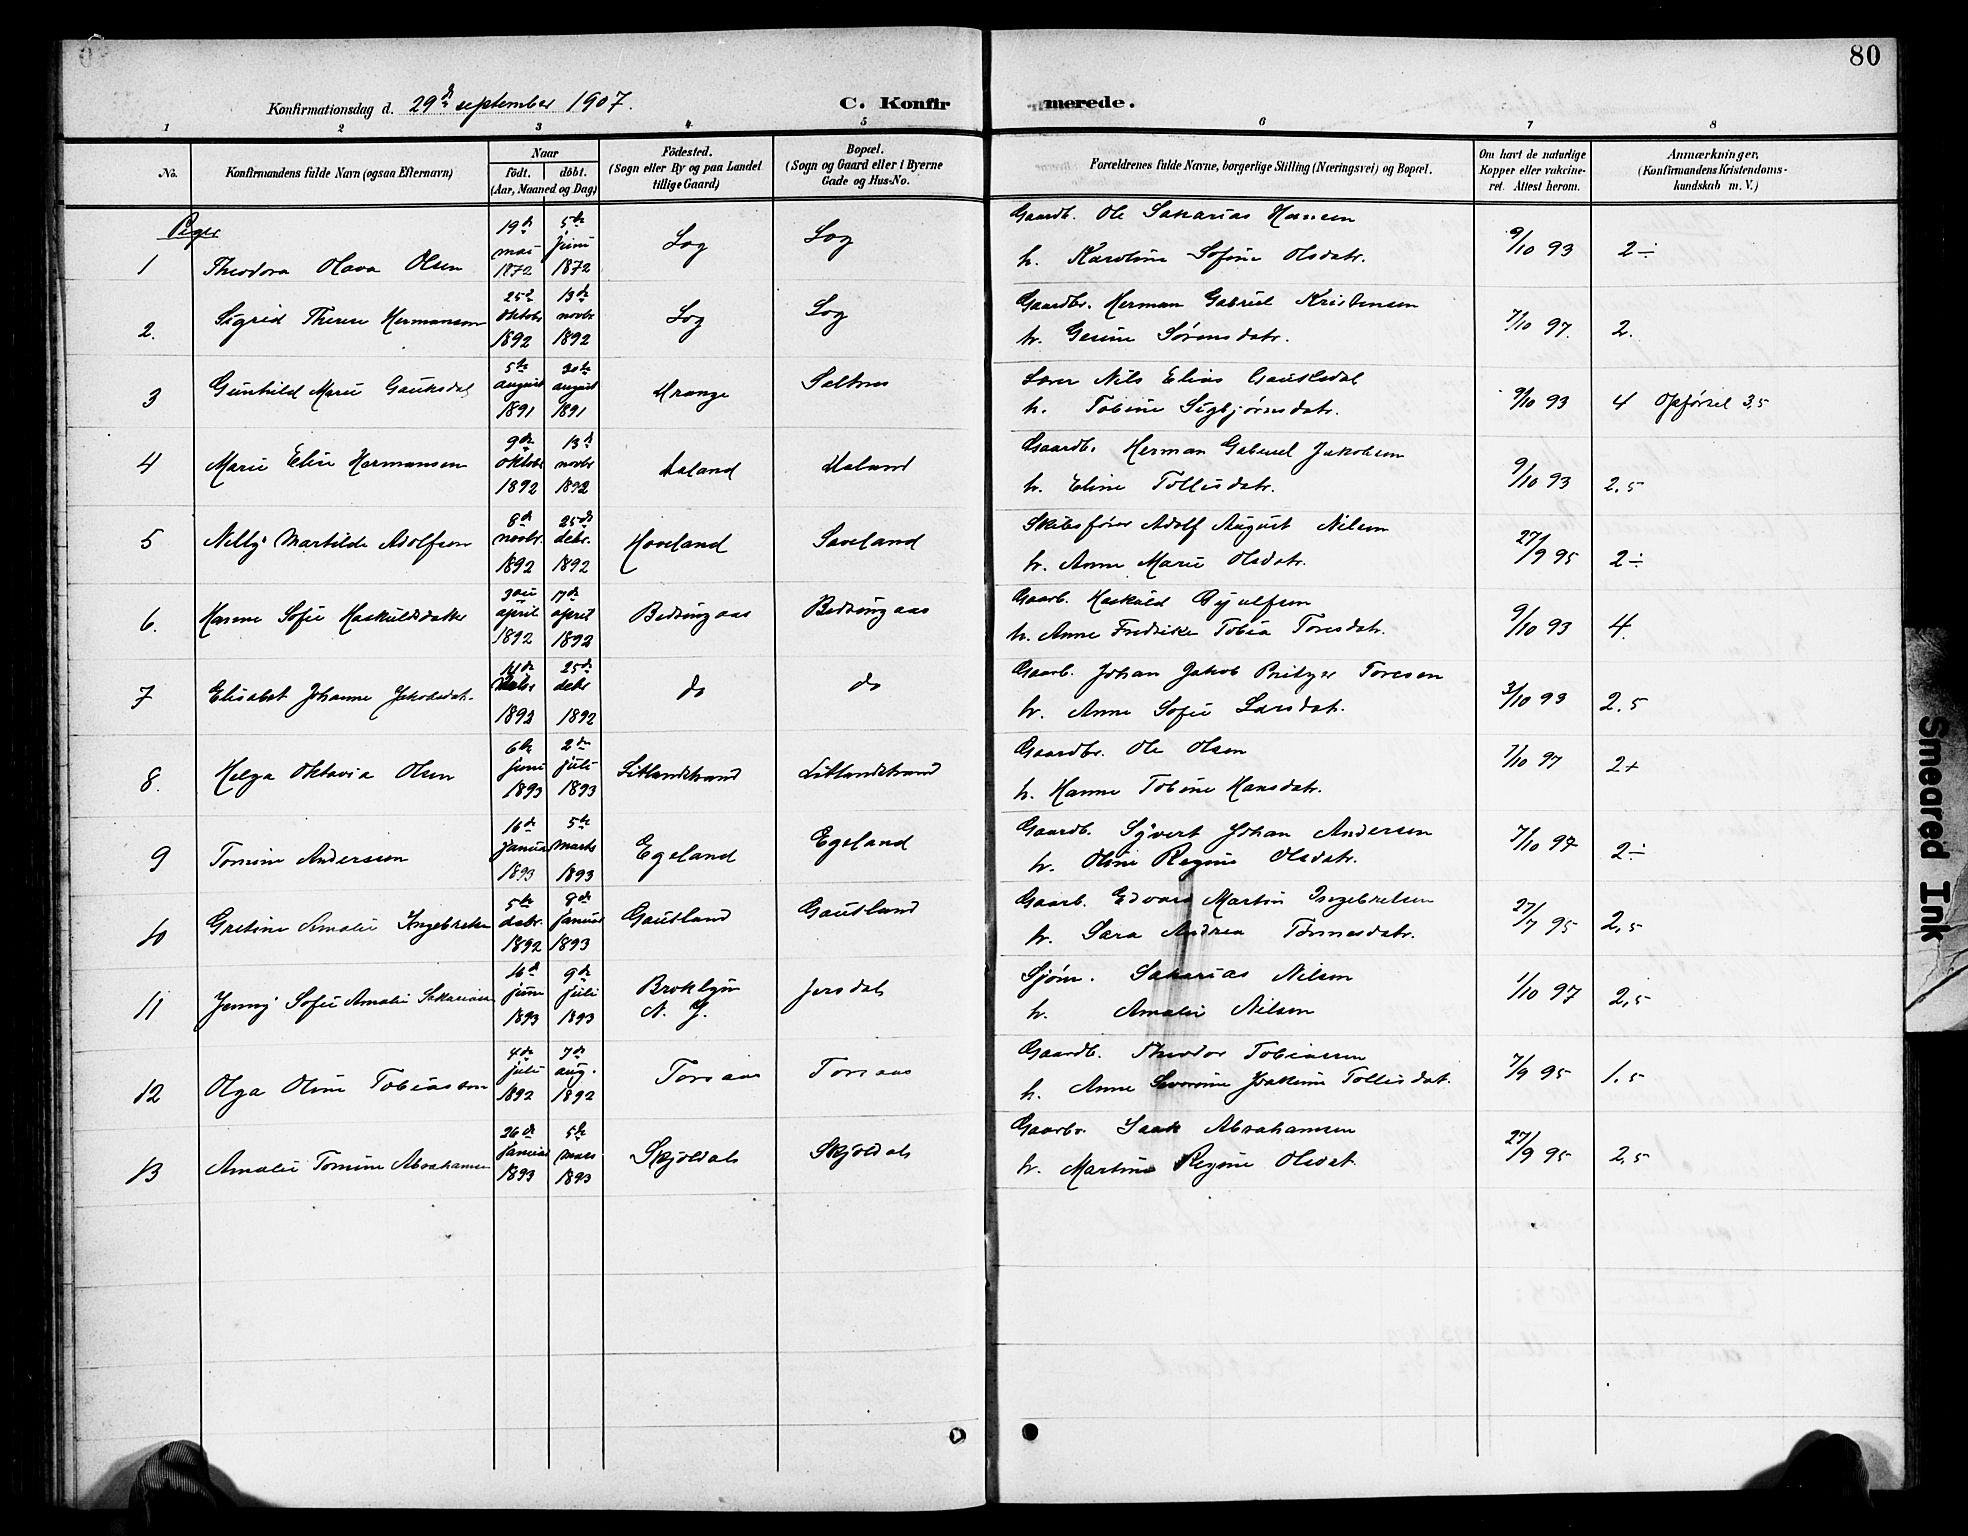 80
Konfirmationsdag d. 29de september 1907.
C. Konfirmerede.
1 2 3 4 5 6 7 8
No.
Konfirmandens fulde Navn (ogsaa Efternavn)
Naar
födt. döbt.
(Aar, Maaned og Dag)
Födested.
(Sogn eller By og paa Landet
tillige Gaard)
Bopæl.
(Sogn og Gaard eller i Byerne
Gade og Hus-No.
Forældrenes fulde Navne, borgerlige Stilling (Næringsvei) og Bopæl.
Om havt de naturlige
Kopper eller vakcine-
ret. Attest herom.
Anmærkninger,
(Konfirmandens Kristendoms-
kundskab m. V.)
Piger
1 Theodora Olava Olsen 19de mai 1872 5te juni 1872 Log Log Gaardb. Ole Sakarias Hansen
h. Karoline Sofine Olsdatr. 9/10 93 2÷
2. Sigrid Therese Hermansen 25de oktobr 1892 13de novbr 1892 Log Log Gaardbr. Herman Gabriel Kristensen
h. Gesine Sørensdatr. 7/10 97. 2.
3 Gunhild Marie Gauksdal 5te august 1891 30te august 1891 Urange Saltnes Lærer Nils Elias Gauksdal
h. Tobine Sigbjørnsdatr. 9/10 93 4 Opførsel 3,5
4 Marie Elise Hermansen 9de oktobr 1892 13de novbr 1892 Aaland Aaland Gaardb. Herman Gabriel Jakobsen
h. Eline Tollisdatr. 9/10 93 2,5
5 Nelly Martilde Adolfsen 8de novbr. 1892 25de debr. 1892 Hoveland Saveland Skibsfører Adolf August Nilsen
h. Anne Marie Olsdatr. 27/9 95 2÷
6. Hanne Sofie Haskuldsdatter april 1892 17de april 1892 Bedringaas Bedringaas Gaarb. Haskuld Eyulfsen
h. Anne Fredrike Tobia Toresdatr. 9/10 93 4
7 Elisabet Johanne Jakobsdatr. 1892 25de debr 1892 do do Gaarb. Johan Jakob Toresen
h. Anne Sofie Larsdatr. 3/10 93 2,5
8. Helga Oktavia Olsen 6te juni 1893 2de juli 1893 Litlandstrand Litlandstrand Gaardbr. Ole Olsen
h. Hanne Tobine Hansdatr. 7/10 97 2+
9 Tomine Andersen 16de januar 1893 5te marts 1893 Egeland Egeland Gaardb. Syvert Johan Andersen
h. Oline Regine Olsdatr. 7/10 97 2÷
10 Gretine Amalie Ingebretsen 5te debr. 1892 8de januar 1893 Gautland Gautland Gaarb. Edvard Martin Ingebretsen
h. Sara Andrea Tønnesdatr. 27/7 95 2,5
11 Jenny Sofie Amalie Sakariasen 16de juni 1893 9de juli 1893 Broklyn N. Y. Jersdal Sjøm. Sakarias Nilsen
h. Amalie Nilsen 1/10 97 2,5
12 Olga Oline Tobiassen 4de juli 1892 7de aug. 1892 Torsaas Torsaas Gaardb. Theodor Tobiassen
h. Anne Severine Joakime Tollisdat. 7/9 95 1.5
13 Amalie Tomine Abrahamsen 26de januar 1893 5te mars 1893 Skjoldal Skjoldal Gaarbr. Isak Abrahamsen
h. Martine Regine Olsdat. 27/9 95 2,5
Smeared Ink